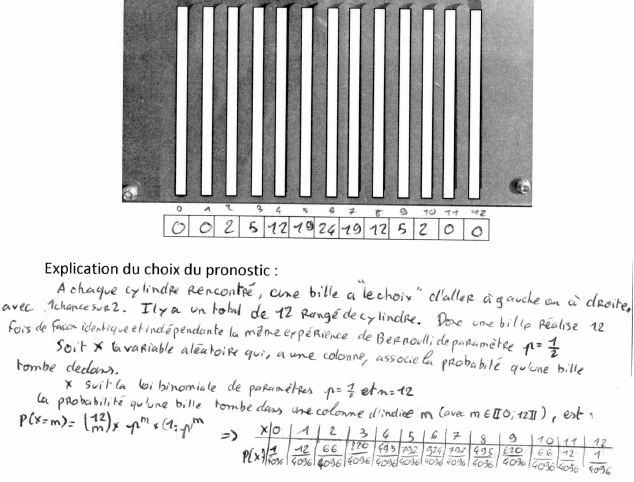 0 1 2 3 4 5 6 7 8 9 10 11 12
0 0 2 5 12 19 24 19 12 5 2 0 0
Explication du choix du pronostic :
A chaque cylindre rencontré, une bille a "le choix" d'aller à gauche ou à droite,
avec 1 chance sur 2. Il y a un total de 12 rangé de cylindre. Donc une bille réalise 12
fois de façon identique et indépendante la même expérience de Bernoulli de paramètre p = 1/2
Soit X la variable aléatoire qui, a une colonne, associe la probabilité qu'une bille
tombe dedans.
X suit la loi binomiale de paramètres p = 1/2 et n = 12
La probabilité qu'une bille tombe dans une colonne d'indice m (avec m ∈ ⟦0;12⟧), est :
P(X=m) = (12 m) × p^m × (1-p^m => X 0 1 2 3 4 5 6 7 8 9 10 11 12
P(X) 1/4096 12/4096 66/4096 220/4096 495/4096 792/4096 924/4096 792/4096 495/4096 220/4096 66/4096 12/4096 1/4096